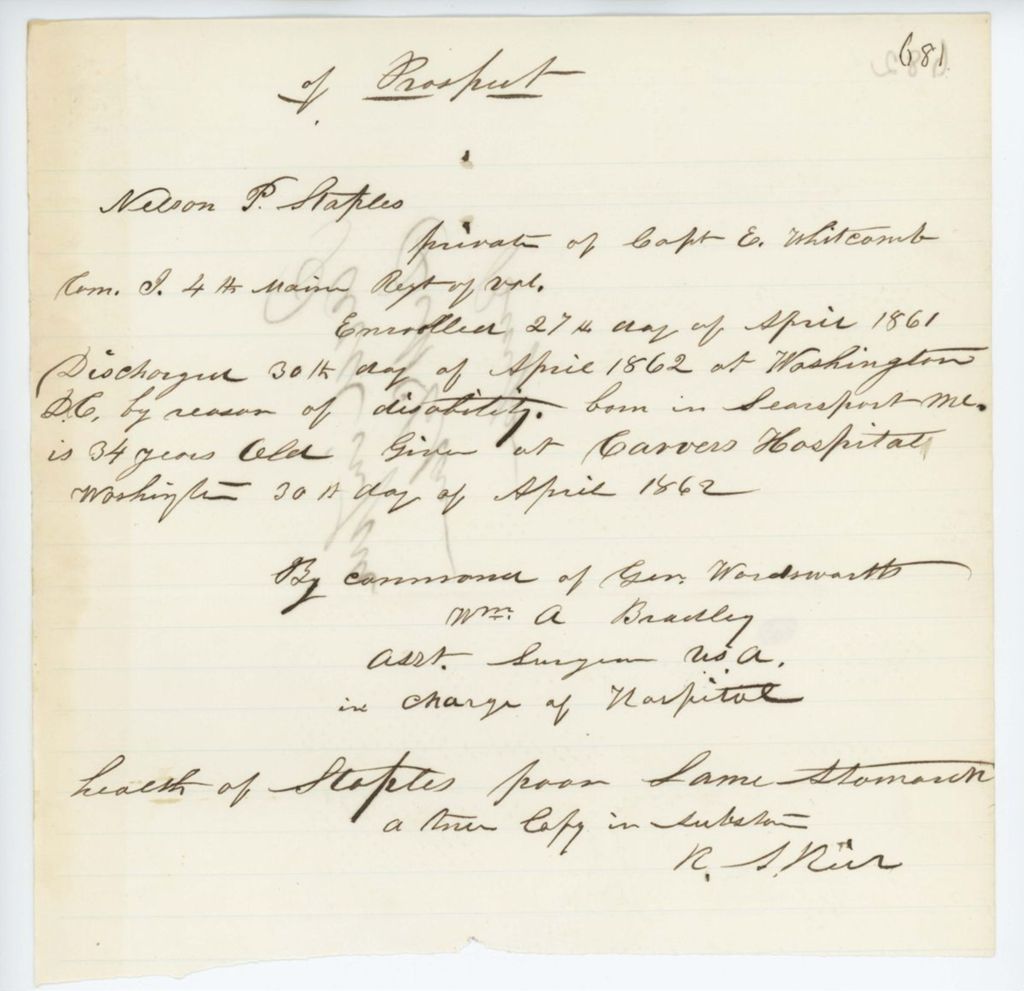 681
of Prospect
Nelson P. Staples
private of Capt E. Whitcomb
Com. I. 4th Maine Regt of vol.
Enrolled 27th day of April 1861
Discharged 30th day of April 1862 at Washington
D.C, by reason of disability. born in Searsport Me.
is 34 years Old Given at Carvers Hospital
Washington 30th day of April 1862
By command of Gen. Wordsworth
Wm. A Bradley
Asst. Surgeon U.S.A.
in charge of Hospital
health of Staples poor Lame Stomach
a true Copy in substan
R. S. Rich